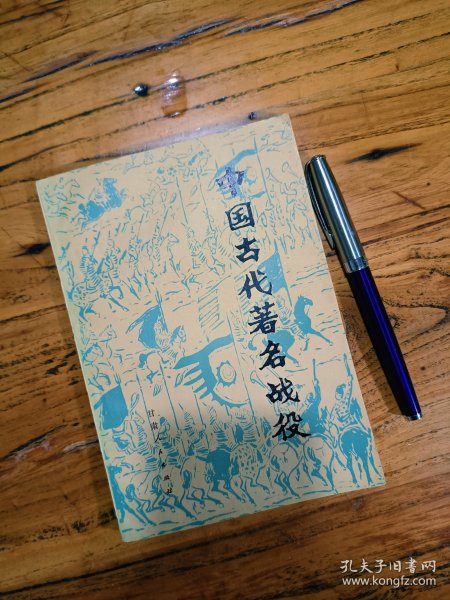 中国古代著名战役
甘肃人民出版社
孔夫子旧书网
www.kongfz.com